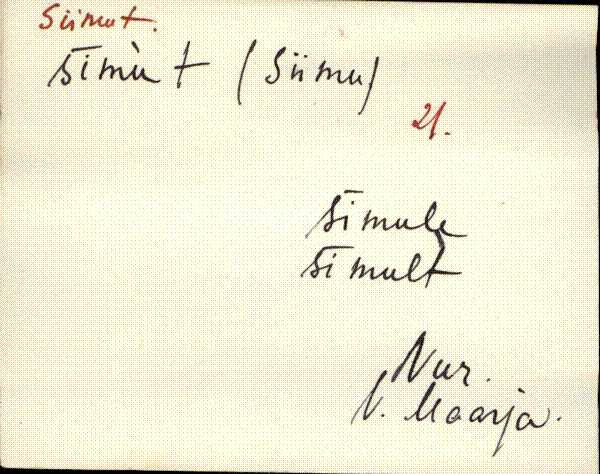 Siimut.
s̄imùt (Siimu)
21.
s̄imule
s̄imult
Nur.
V. Maarja.